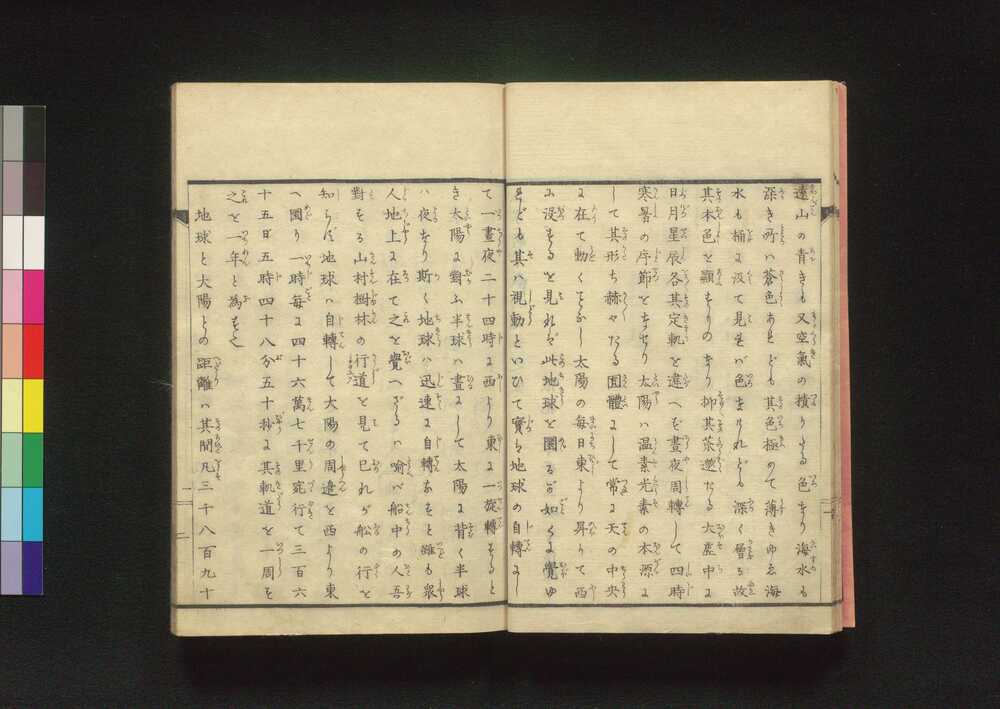 遠山の青きも又空氣の積りたる色なり海水も
深き所ハ蒼色あれども其色極めて薄きゆゑ海
水も桶に汲て見れバ色なけれども深く層る故
其本色を顯すものなり抑其茫邈たる大虚中に
日月星辰各其定軌を違へず晝夜周轉して四時
寒暑の序節をなせり太陽ハ温素光素の本源に
して其形ち赫々たる圓體にして常に天の中央
に在て動くことなし太陽の毎日東より昇りて西
に没するを見れバ此地球を圜るが如くに覺ゆ
れども其ハ視動といひて實ハ地球の自轉にし
て一晝夜二十四時に西より東に一旋轉すると
き太陽に對ふ半球ハ晝にして太陽に背く半球
ハ夜なり斯く地球ハ迅速に自轉なすと雖も衆
人地上に在て之を覺へざるハ喻バ船中の人吾
對する山村樹林の行道を見て已れが船の行を
知らず地球ハ自轉して大陽の周邊を西より東
へ圜り一時毎に四十六萬七千里宛行て三百六
十五日五時四十八分五十秒に其軌道を一周す
之を一年と為すと
地球と大陽との距離ハ其間凡三千八百九十